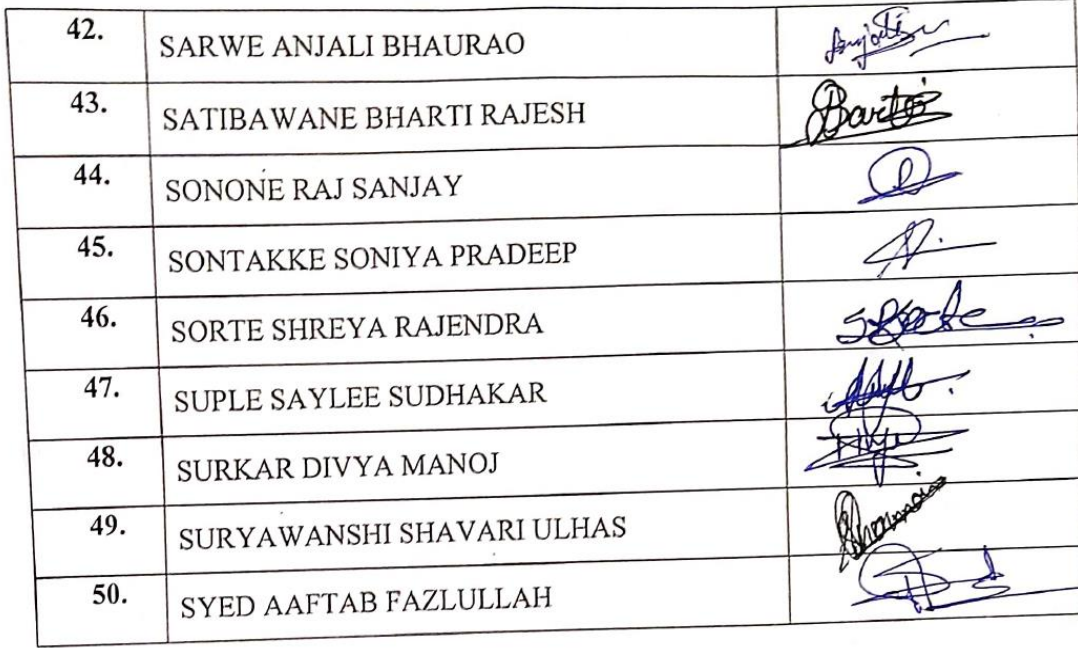 42. SARWE ANJALI BHAURAO Anjali
43. SATIBAWANE BHARTI RAJESH
44. SONONE RAJ SANJAY
45. SONTAKKE SONIYA PRADEEP
46. SORTE SHREYA RAJENDRA
47. SUPLE SAYLEE SUDHAKAR
48. SURKAR DIVYA MANOJ
49. SURYAWANSHI SHAVARI ULHAS
50. SYED AAFTAB FAZLULLAH